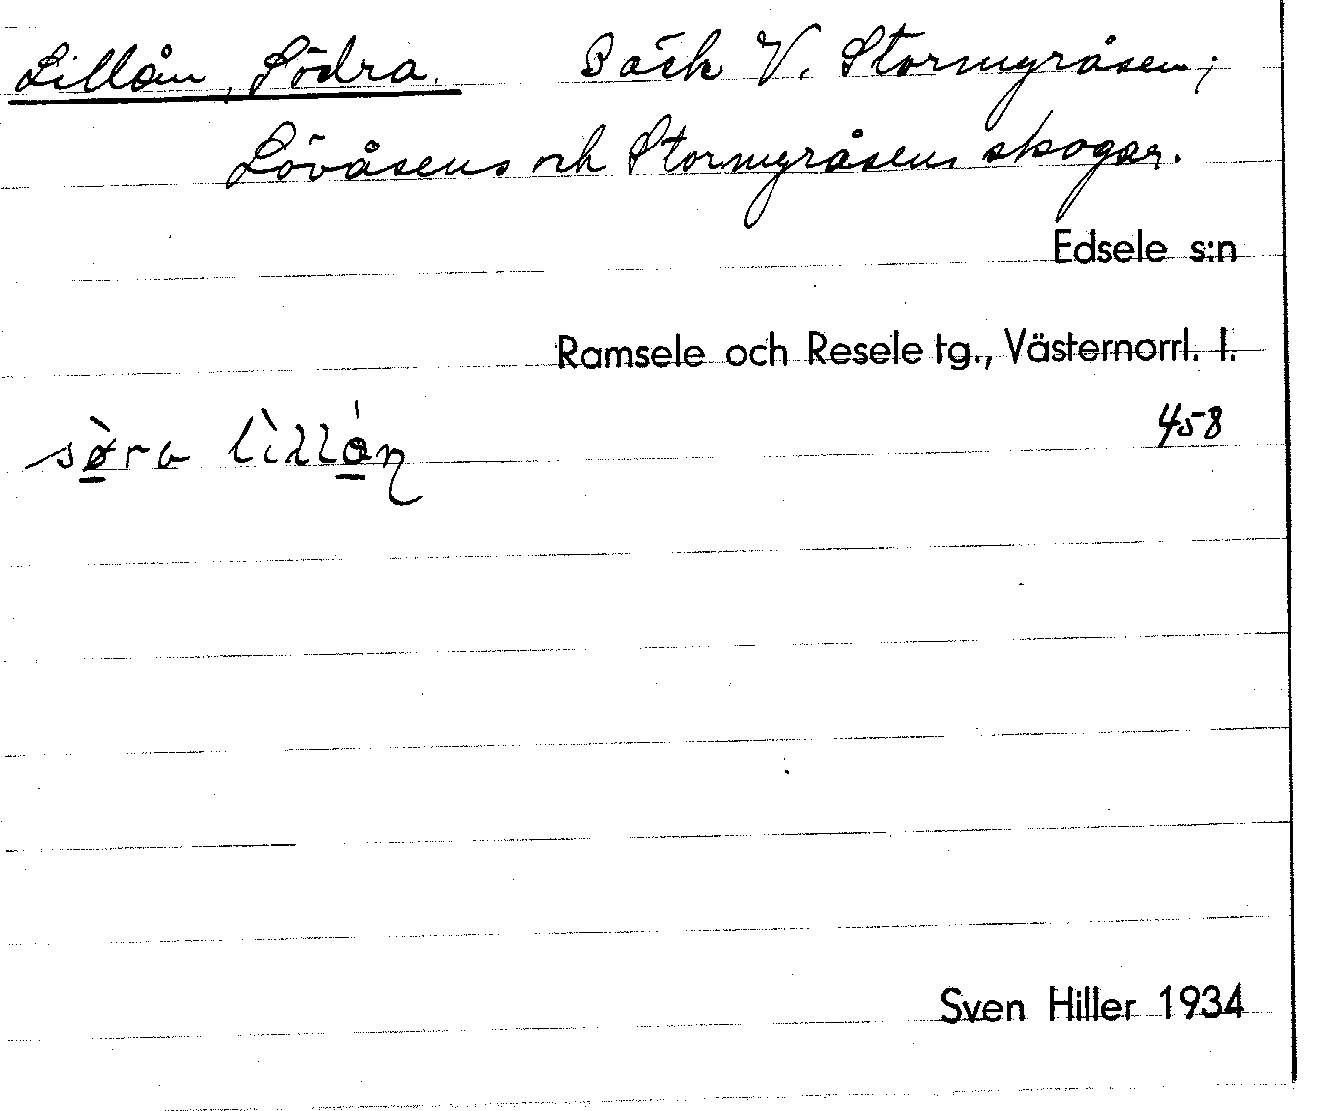 Lillån, Södra. Bäck V. Stormyråsen;
Lövåsens och Stormyråsens skogar.
Edsele s:n
Ramsele och Resele tg., Västernorrl. l.
458
sø̀ra lìllån
Sven Hiller 1934